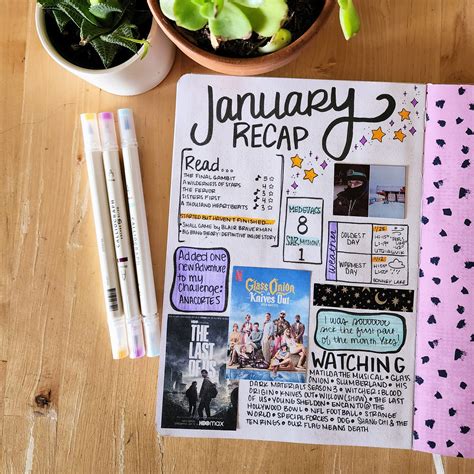 January
RECAP
Read...
THE FINAL GAMBIT 5☆
A WILDERNESS OF STARS 3☆
THE FERVOR 4☆
SISTERS FIRST 4☆
A THOUSAND HEARTBEATS 3☆
STARTED BUT HAVEN'T FINISHED...
• SMALL GAME BY BLAIR BRAVERMAN
• BIG BANG THEORY: DEFINITIVE INSIDE STORY
8
1
Weather
COLDEST
DAY
WARMEST
DAY
Added one
new Adventure
to my
Challenge:
ANACORTES
Glass Onion
Knives Out
THE LAST
OF US
HBOMAX
I was sooooooo
sick the first part
of the month. Yikes!
WATCHING
MATILDA THE MUSICAL • GLASS
ONION • SLUMBERLAND • HIS
DARK MATERIALS SEASON 3 • WITCHER: BLOOD
ORIGIN • KNIVES OUT • WILLOW (SHOW) • THE LAST
OF US • YOUNG SHELDON • ENCANTO @ THE
HOLLYWOOD BOWL • NFL FOOTBALL • STRANGE
WORLD • SPECIAL FORCES • DOG • SHANG CHI & THE
TEN RINGS • OUR FLAG MEANS DEATH